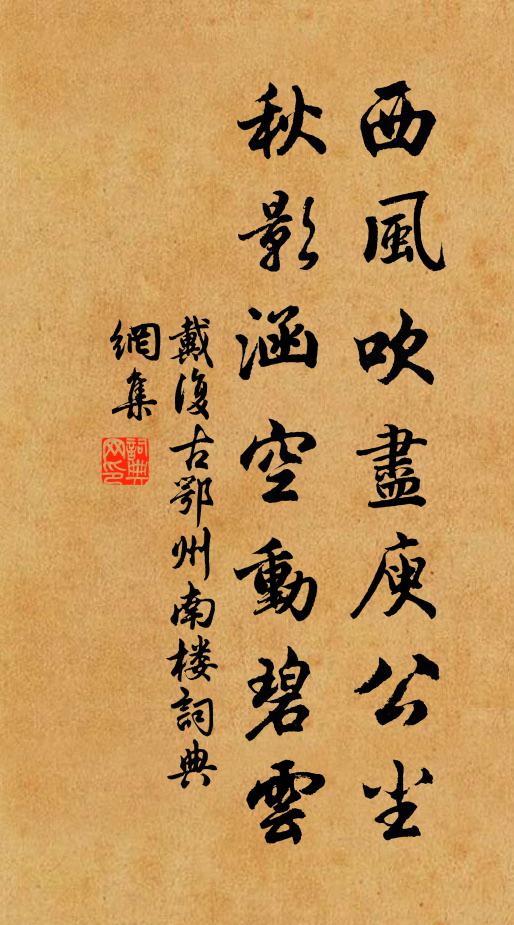 西風吹盡庾公尘
秋影涵空動碧雲
戴復古鄂州南楼詞典
網集
詞典网印